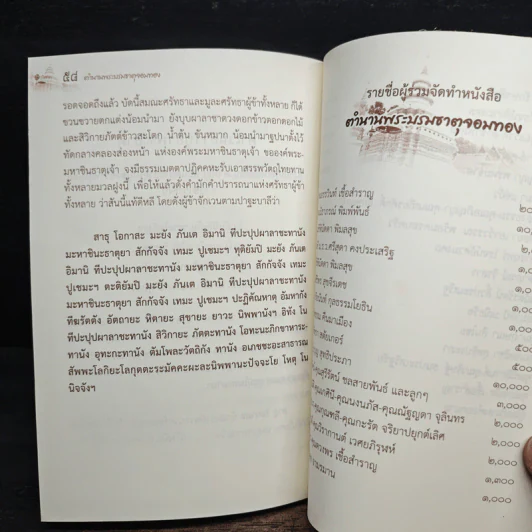 ๕๔ ตำนานพระบรมธาตุจอมทอง
รอดจอดถึงแล้ว บัดนี้สมณะศรัทธาและมูละศรัทธาผู้ข้าทั้งหลาย ก็ได้
ขวนขวายตกแต่งน้อมนำมา ยังบุบผาลาชาดวงดอกข้าวตอกดอกไม้
และสิวิกายภัตต์ข้าวสะโตก น้ำต้น ขันหมาก น้อมนำมาฐปนาตั้งไว้
ทัดกลางคลองส่องหน้า แห่งองค์พระมหาชินธาตุเจ้า ขอองค์พระ-
มหาชินธาตุเจ้า จุ่งมีธรรมเมตตาปฏิคคหะรับเอาสรรพวัตถุไทยทาน
ทั้งหลายมวลฝูงนี้ เพื่อให้แล้วดั่งคำมักคำปรารถนาแห่งศรัทธาผู้ข้า
ทั้งหลาย ว่าสันนี้แท้ดีหลี โดยดั่งผู้ข้าจักเวนตามปาฐะบาลีว่า
สาธุ โอกาสะ มะยัง ภันเต อิมานิ ทีปะปุปผาลาชะทานัง
มะหาชินะธาตุยา สักกัจจัง เทมะ ปูเชมะฯ ทุติยัมปิ มะยัง ภันเต
อิมานิ ทีปะปุปผาลาชะทานัง มะหาชินะธาตุยา สักกัจจัง เทมะ
ปูเชมะฯ ตะติยัมปิ มะยัง ภันเต อิมานิ ทีปะปุปผาลาชะทานัง
มะหาชินะธาตุยา สักกัจจัง เทมะ ปูเชมะฯ ปะฏิคัณหาตุ อัมหากัง
ทีฆรัตตัง อัตถายะ หิตายะ สุขายะ ยาวะ นิพพานังฯ อิทัง โน
ทีปะปุปผาลาชะทานัง สิวิกายะ ภัตตะทานัง โอทะนะภิกขาหาระ-
ทานัง อุทะกะทานัง ตัมโพละวัตถิกัง ทานัง อเภชชะอะสาธารณ
สัพพะโลกิยะโลกุตตะระมัคคะผะละนิพพานะปัจจะโย โหตุ โน
นิจจังฯ
รายชื่อผู้ร่วมจัดทำหนังสือ
ตำนานพระบรมธาตุจอมทอง
เชื้อสำราญ
พิมพ์พันธ์ ๑๐,
พิมลสุข
ศรีสุดา คงประเสริฐ
พิมลสุข
สุขจิรเดช
กุลธรรมโยธิน
คันมาเมือง
๕๐๐
สุทธิประภา ๕๐๐
ชลสายพันธ์ และลูกๆ ๑๐,๐๐๐
-คุณนงนภัส-คุณณัฐญดา จุลินทร ๓,๐๐๐
-คุณกะรัต จริยาปยุกต์เลิศ ๒,๐๐๐
เวศยภิรุพห์ ๒,๐๐๐
เชื้อสำราญ ๒,๐๐๐
๑,๓๐๐
๑,๐๐๐